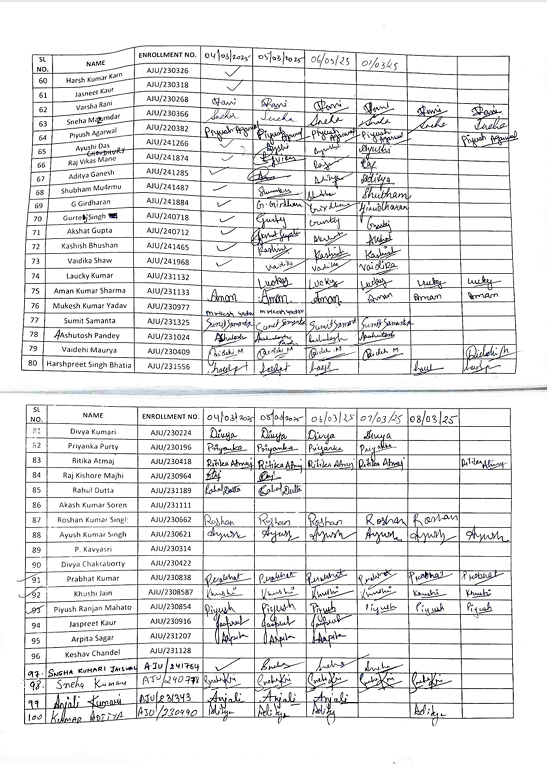 SL NO. NAME ENROLLMENT NO. 04/03/2025 05/03/2025 06/03/25 01/03/25
60 Harsh Kumar Karn AJU/230326 ✓
61 Jasneet Kaur AJU/230318 ✓
62 Varsha Rani AJU/230268
63 Sneha Mazumdar AJU/230366 Sneha Sneha Sneha Sneha Sneha Sneha
64 Piyush Agarwal AJU/220382 Piyush Agarwal Piyush Agarwal Piyush Agarwal Piyush Agarwal Piyush Agarwal
65 Ayushi Das CHOUDHURY AJU/241266 ✓ Ayushi
66 Raj Vikas Mane AJU/241874 ✓ Raj
67 Aditya Ganesh AJU/241285 ✓ Aditya Aditya
68 Shubham Mu4rmu AJU/241487 ✓ Shubham
69 G Girdharan AJU/241884 ✓ G. Girdharan Girdharan
70 Gurtej Singh AJU/240718 ✓
71 Akshat Gupta AJU/240712 ✓ Akshat Gupta Akshat
72 Kashish Bhushan AJU/241465 ✓ Kashish Kashish Kashish
73 Vaidika Shaw AJU/241968 ✓ Vaidika Vaidika Vaidika
74 Laucky Kumar AJU/231132 Lucky Lucky Lucky Lucky Lucky
75 Aman Kumar Sharma AJU/231133 Aman Aman Aman Aman Aman Aman
76 Mukesh Kumar Yadav AJU/230977 Mukesh Yadav Mukesh Yadav
77 Sumit Samanta AJU/231325 Sumit Samanta Sumit Samanta Sumit Samant Sumit Samanta
78 Ashutosh Pandey AJU/231024 Ashutosh Ashutosh
79 Vaidehi Maurya AJU/230409 Vaidehi M
80 Harshpreet Singh Bhatia AJU/231556
SL NO. NAME ENROLLMENT NO. 04/03/2025 05/03/2025 06/03/25 07/03/25 08/03/25
81 Divya Kumari AJU/230224 Divya Divya Divya Divya
82 Priyanka Purty AJU/230196 Priyanka Priyanka Priyanka Priyanka
83 Ritika Atmaj AJU/230418 Ritika Atmaj Ritika Atmaj Ritika Atmaj Ritika Atmaj Ritika Atmaj
84 Raj Kishore Majhi AJU/230964 Raj Raj
85 Rahul Dutta AJU/231189 Rahul Dutta Rahul Dutta
86 Akash Kumar Soren AJU/231111
87 Roshan Kumar Singh AJU/230662 Roshan Roshan Roshan Roshan Roshan
88 Ayush Kumar Singh AJU/230621 Ayush Ayush Ayush Ayush Ayush Ayush
89 P. Kavyasri AJU/230314
90 Divya Chakraborty AJU/230422
91 Prabhat Kumar AJU/230838 Prabhat Prabhat Prabhat Prabhat Prabhat Prabhat
92 Khushi Jain AJU/2308587 Khushi Khushi Khushi Khushi Khushi Khushi
93 Piyush Ranjan Mahato AJU/230854 Piyush Piyush Piyush Piyush Piyush Piyush
94 Jaspreet Kaur AJU/230916 Jaspreet Jaspreet Jaspreet
95 Arpita Sagar AJU/231207 Arpita Arpita Arpita
96 Keshav Chandel AJU/231128
97. SNEHA KUMARI JAISWAL AJU/241784 ✓ Sneha Sneha Sneha
98. Sneha Kumari AJU/240778
99 Anjali Kumari AJU/231343 Anjali Anjali Anjali
100 KUMAR ADITYA AJU/230440 Aditya Aditya Aditya